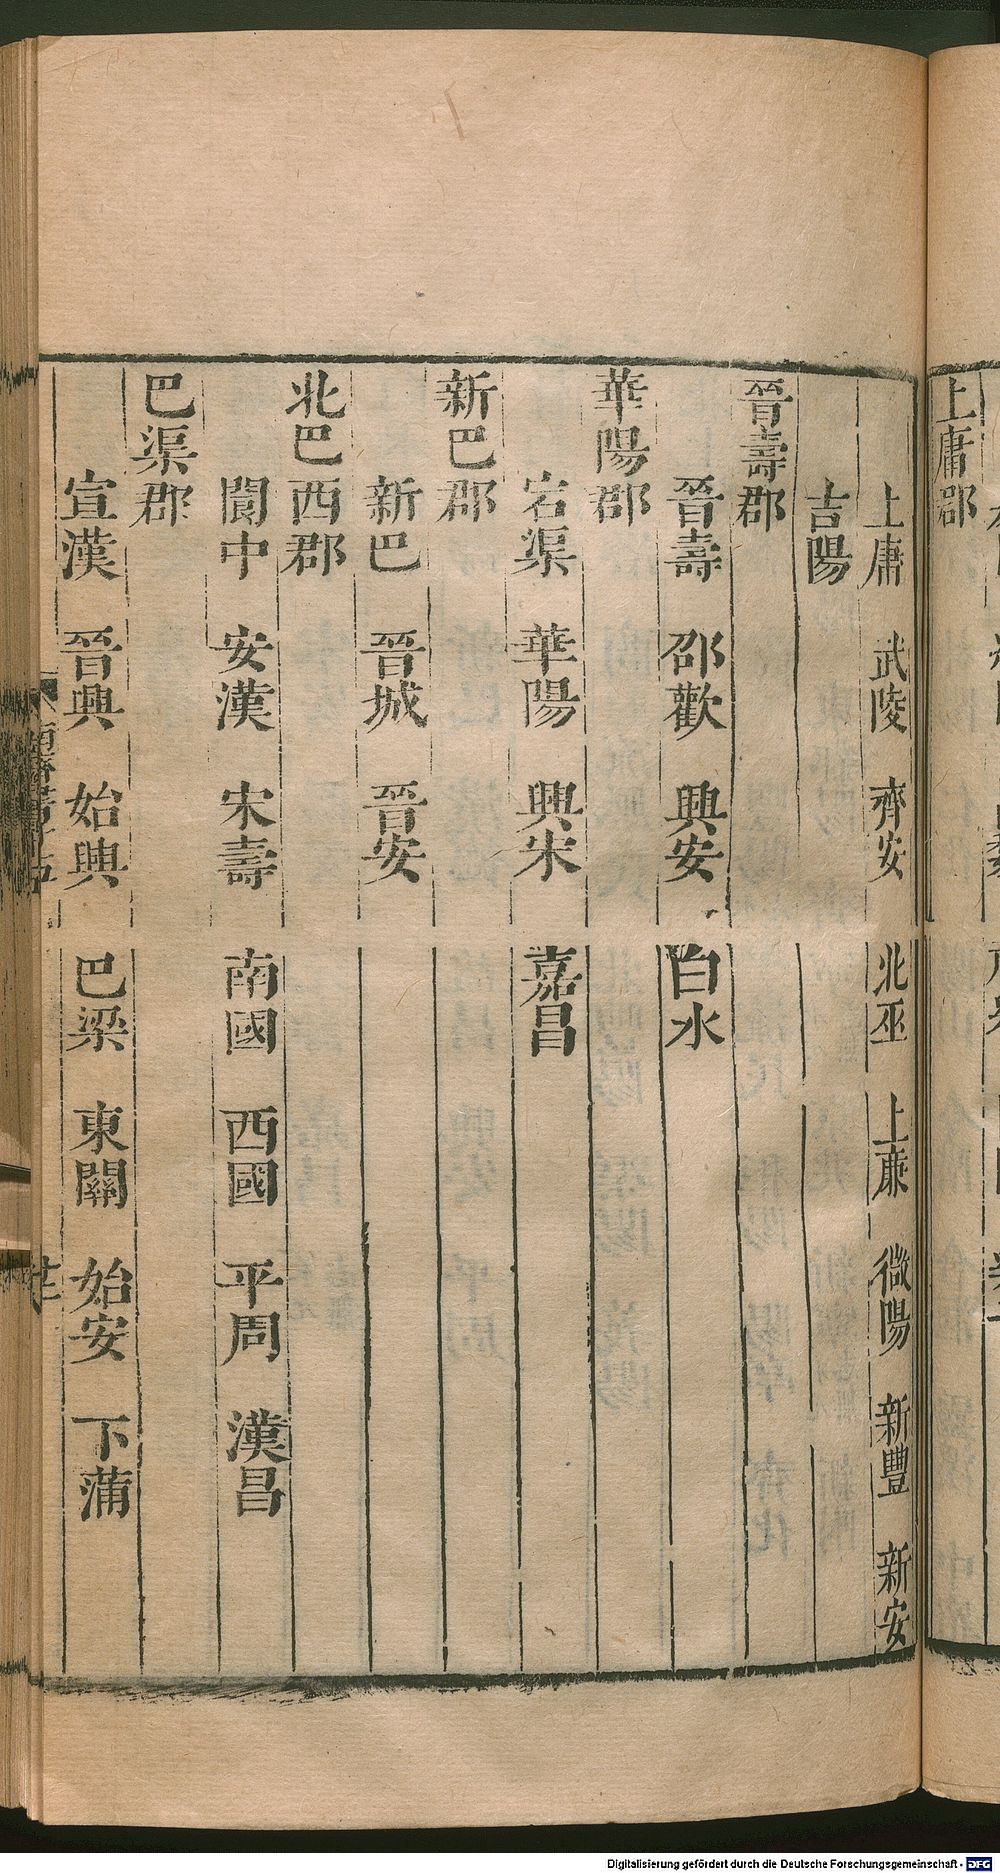 上庸郡
上庸　武陵　齊安　北巫　上廉　微陽　新豐　新安
吉陽
晉壽郡
晉壽　邵歡　興安　白水
華陽郡
宕渠　華陽　興宋　嘉昌
新巴郡
新巴　晉城　晉安
北巴西郡
閬中　安漢　宋壽　南國　西國　平周　漢昌
巴渠郡
宣漢　晉興　始興　巴梁　東關　始安　下蒲
Digitalisierung gefördert durch die Deutsche Forschungsgemeinschaft - DFG